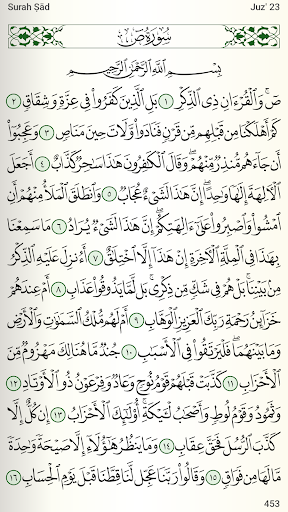 Surah Ṣād Juz' 23
سُورَةُ صٓ
بِسۡمِ ٱللَّهِ ٱلرَّحۡمَٰنِ ٱلرَّحِيمِ
صٓۚ وَٱلۡقُرۡءَانِ ذِي ٱلذِّكۡرِ ١ بَلِ ٱلَّذِينَ كَفَرُواْ فِي عِزَّةٖ وَشِقَاقٖ ٢
كَمۡ أَهۡلَكۡنَا مِن قَبۡلِهِم مِّن قَرۡنٖ فَنَادَواْ وَّلَاتَ حِينَ مَنَاصٖ ٣ وَعَجِبُوٓاْ
أَن جَآءَهُم مُّنذِرٞ مِّنۡهُمۡۖ وَقَالَ ٱلۡكَٰفِرُونَ هَٰذَا سَٰحِرٞ كَذَّابٌ ٤ أَجَعَلَ
ٱلۡأٓلِهَةَ إِلَٰهٗا وَٰحِدًاۖ إِنَّ هَٰذَا لَشَيۡءٌ عُجَابٞ ٥ وَٱنطَلَقَ ٱلۡمَلَأُ مِنۡهُمۡ أَنِ
ٱمۡشُواْ وَٱصۡبِرُواْ عَلَىٰٓ ءَالِهَتِكُمۡۖ إِنَّ هَٰذَا لَشَيۡءٞ يُرَادُ ٦ مَا سَمِعۡنَا
بِهَٰذَا فِي ٱلۡمِلَّةِ ٱلۡأٓخِرَةِ إِنۡ هَٰذَآ إِلَّا ٱخۡتِلَٰقٌ ٧ أَءُنزِلَ عَلَيۡهِ ٱلذِّكۡرُ
مِنۢ بَيۡنِنَاۚ بَلۡ هُمۡ فِي شَكّٖ مِّن ذِكۡرِيۚ بَل لَّمَّا يَذُوقُواْ عَذَابِ ٨ أَمۡ عِندَهُمۡ
خَزَآئِنُ رَحۡمَةِ رَبِّكَ ٱلۡعَزِيزِ ٱلۡوَهَّابِ ٩ أَمۡ لَهُم مُّلۡكُ ٱلسَّمَٰوَٰتِ وَٱلۡأَرۡضِ
وَمَا بَيۡنَهُمَاۖ فَلۡيَرۡتَقُواْ فِي ٱلۡأَسۡبَٰبِ ١٠ جُندٞ مَّا هُنَالِكَ مَهۡزُومٞ مِّنَ
ٱلۡأَحۡزَابِ ١١ كَذَّبَتۡ قَبۡلَهُمۡ قَوۡمُ نُوحٖ وَعَادٞ وَفِرۡعَوۡنُ ذُو ٱلۡأَوۡتَادِ ١٢
وَثَمُودُ وَقَوۡمُ لُوطٖ وَأَصۡحَٰبُ لۡـَٔيۡكَةِۚ أُوْلَٰٓئِكَ ٱلۡأَحۡزَابُ ١٣ إِن كُلٌّ إِلَّا
كَذَّبَ ٱلرُّسُلَ فَحَقَّ عِقَابِ ١٤ وَمَا يَنظُرُ هَٰٓؤُلَآءِ إِلَّا صَيۡحَةٗ وَٰحِدَةٗ
مَّا لَهَا مِن فَوَاقٖ ١٥ وَقَالُواْ رَبَّنَا عَجِّل لَّنَا قِطَّنَا قَبۡلَ يَوۡمِ ٱلۡحِسَابِ ١٦
453